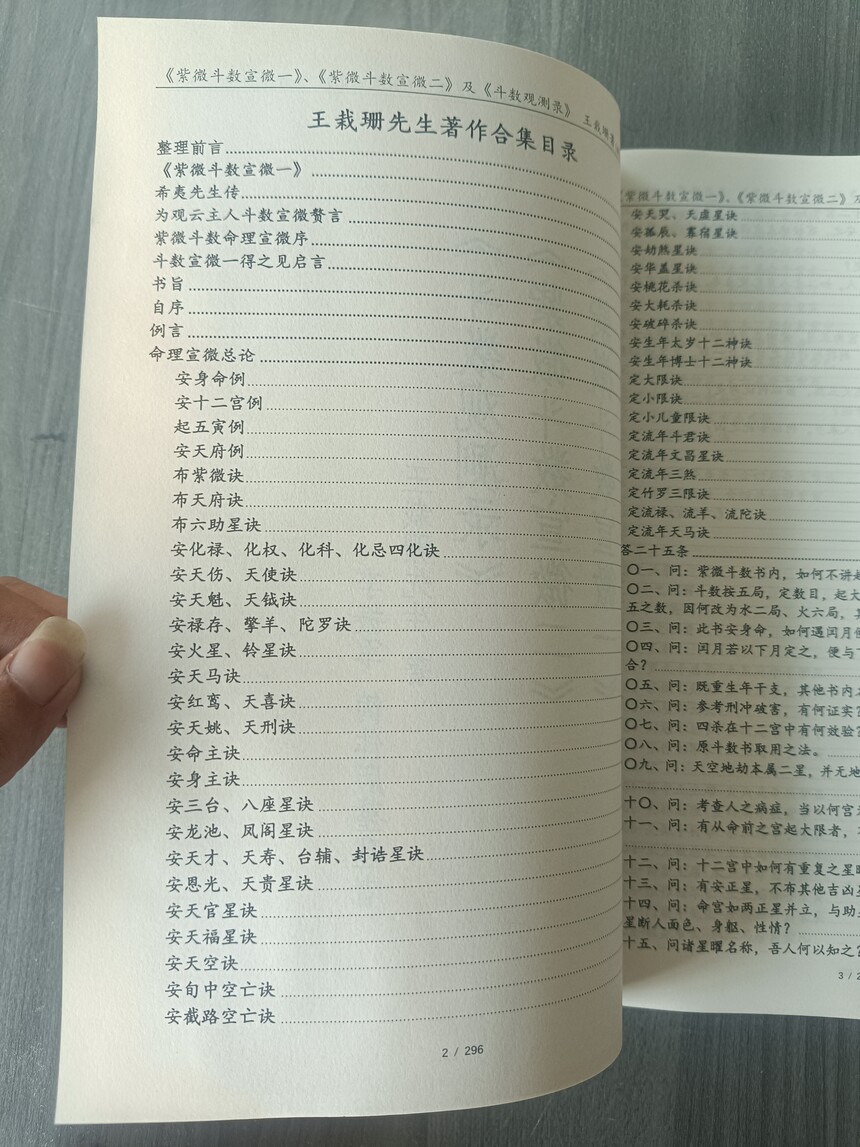 《紫微斗数宣微一》、《紫微斗数宣微二》及《斗数观测录》 王栽珊
王栽珊先生著作合集目录
整理前言
《紫微斗数宣微一》
希夷先生传
为观云主人斗数宣微赘言
紫微斗数命理宣微序
斗数宣微一得之见启言
书旨
自序
例言
命理宣微总论
安身命例
安十二宫例
起五寅例
安天府例
布紫微诀
布天府诀
布六助星诀
安化禄、化权、化科、化忌四化诀
安天伤、天使诀
安天魁、天钺诀
安禄存、擎羊、陀罗诀
安火星、铃星诀
安天马诀
安红鸾、天喜诀
安天姚、天刑诀
安命主诀
安身主诀
安三台、八座星诀
安龙池、凤阁星诀
安天才、天寿、台辅、封诰星诀
安恩光、天贵星诀
安天官星诀
安天福星诀
安天空诀
安旬中空亡诀
安截路空亡诀
2 / 296
《紫微斗数宣微一》、《紫微斗数宣微二》及
安天哭、天虚星诀
安孤辰、寡宿星诀
安劫煞星诀
安华盖星诀
安桃花杀诀
安大耗杀诀
安破碎杀诀
安生年太岁十二神诀
安生年博士十二神诀
定大限诀
定小限诀
定小儿童限诀
定流年斗君诀
定流年文昌星诀
定流年三煞
定竹罗三限诀
定流禄、流羊、流陀诀
定流年天马诀
答二十五条
〇一、问：紫微斗数书内，如何不讲
〇二、问：斗数按五局，定数目，起大
五之数，因何改为水二局、火六局，
〇三、问：此书安身命，如何遇闰月
〇四、问：闰月若以下月定之，便与
合？
〇五、问：既重生年干支，其他书内
〇六、问：参考刑冲破害，有何证实？
〇七、问：四杀在十二宫中有何效验？
〇八、问：原斗数书取用之法。
〇九、问：天空地劫本属二星，并无地
十〇、问：考查人之病症，当以何宫
十一、问：有从命前之宫起大限者，
十二、问：十二宫中如何有重复之星
十三、问：有安正星，不布其他吉凶
十四、问：命宫如两正星并立，与助
星断人面色、身躯、性情？
十五、问诸星曜名称，吾人何以知之？
3 / 2